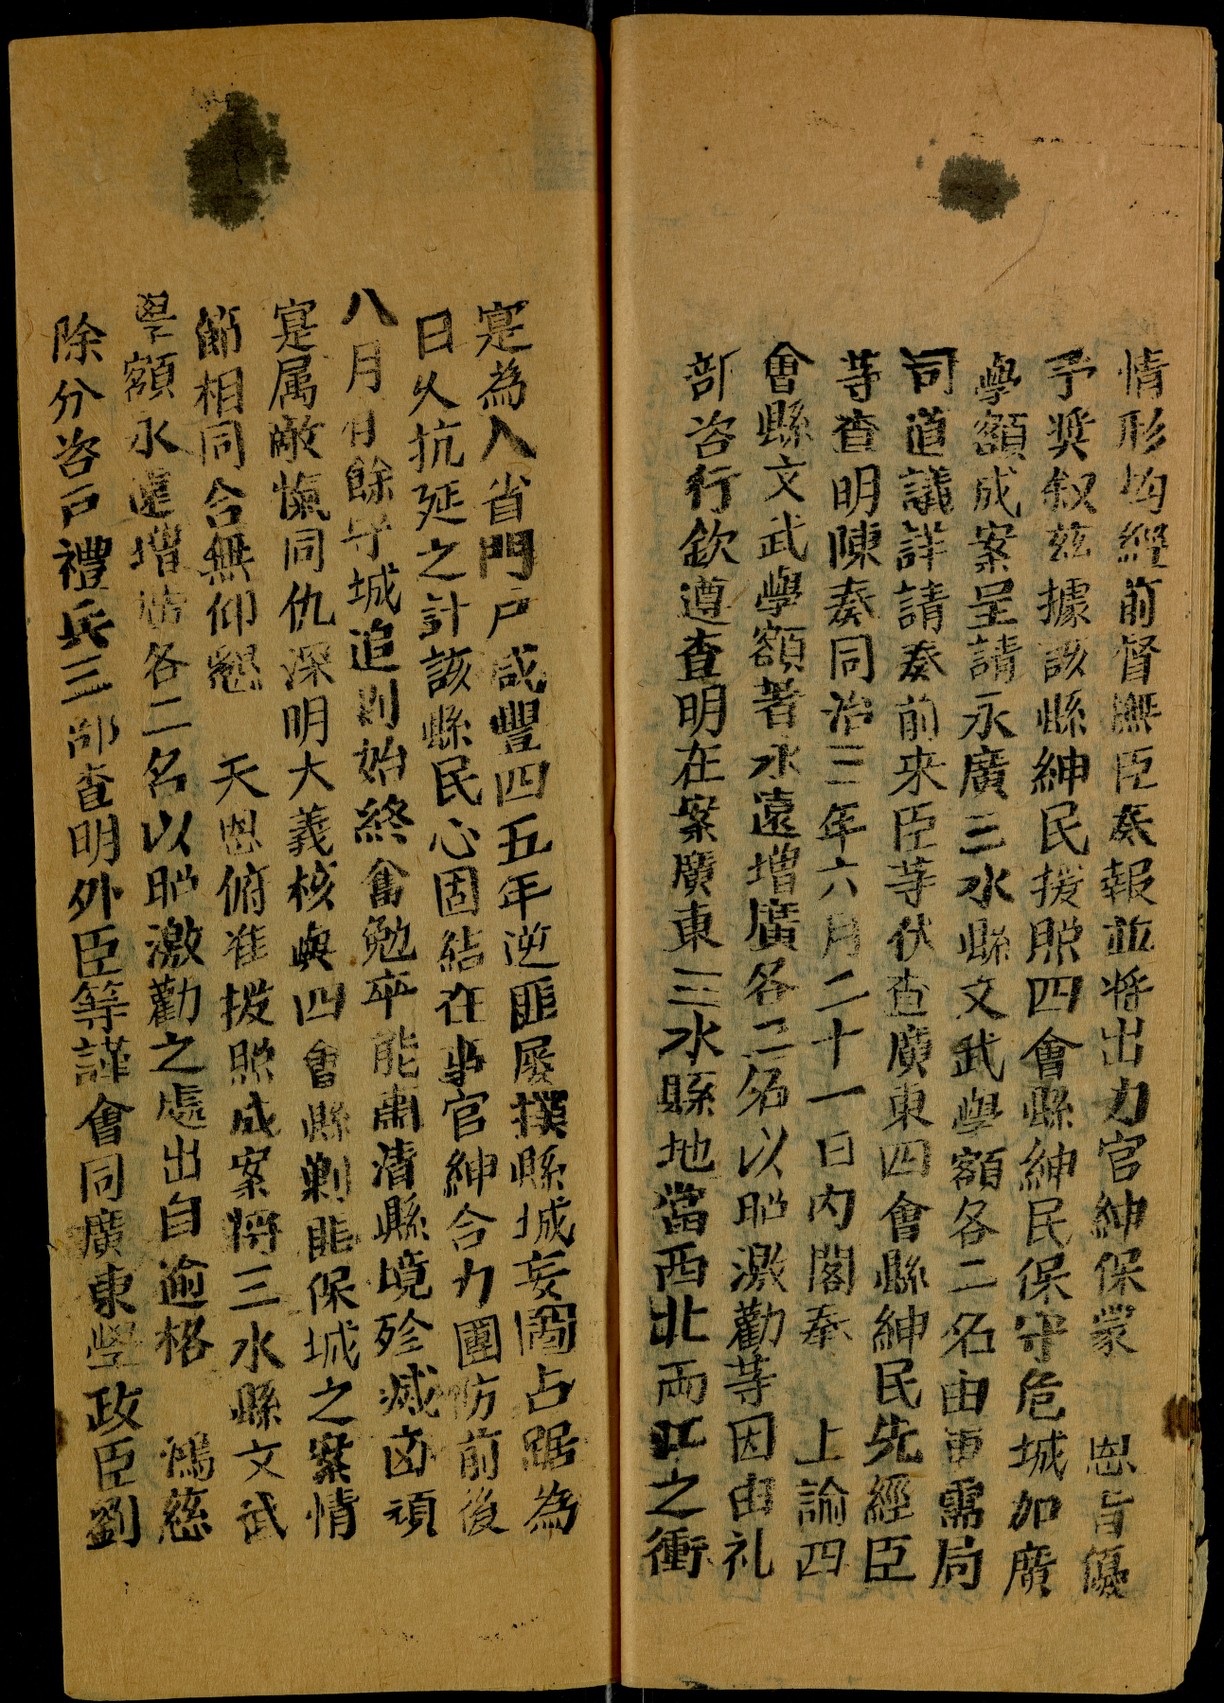 情形均經前督撫臣奏報並將出力官紳保蒙　恩旨優
予奬叙茲據該縣紳民援照四會縣紳民保守危城加廣
學額成案呈請永廣三水縣文武學額各二名由軍需局
司道議詳請奏前来臣等伏查廣東四會縣紳民先經臣
等查明陳奏同治三年六月二十一日内閣奉　上諭四
會縣文武學額著永遠增廣各二名以昭激勸等因由礼
部咨行欽遵查明在案廣東三水縣地當西北両江之衝
寔為入省門户咸豐四五年逆匪屡撲縣城妄啚占踞為
日久抗延之計該縣民心固結在事官紳合力團防前後
八月有餘守城追剿始終奮勉卒能肅清縣境殄滅凶頑
寔属敵愾同仇深明大義核與四會縣剿匪保城之案情
節相同合無仰懇　天恩俯准援照成案将三水縣文武
學額永遠增廣各二名以昭激勸之處出自逾格　鴻慈
除分咨户禮兵三部查明外臣等謹會同廣東學政臣劉